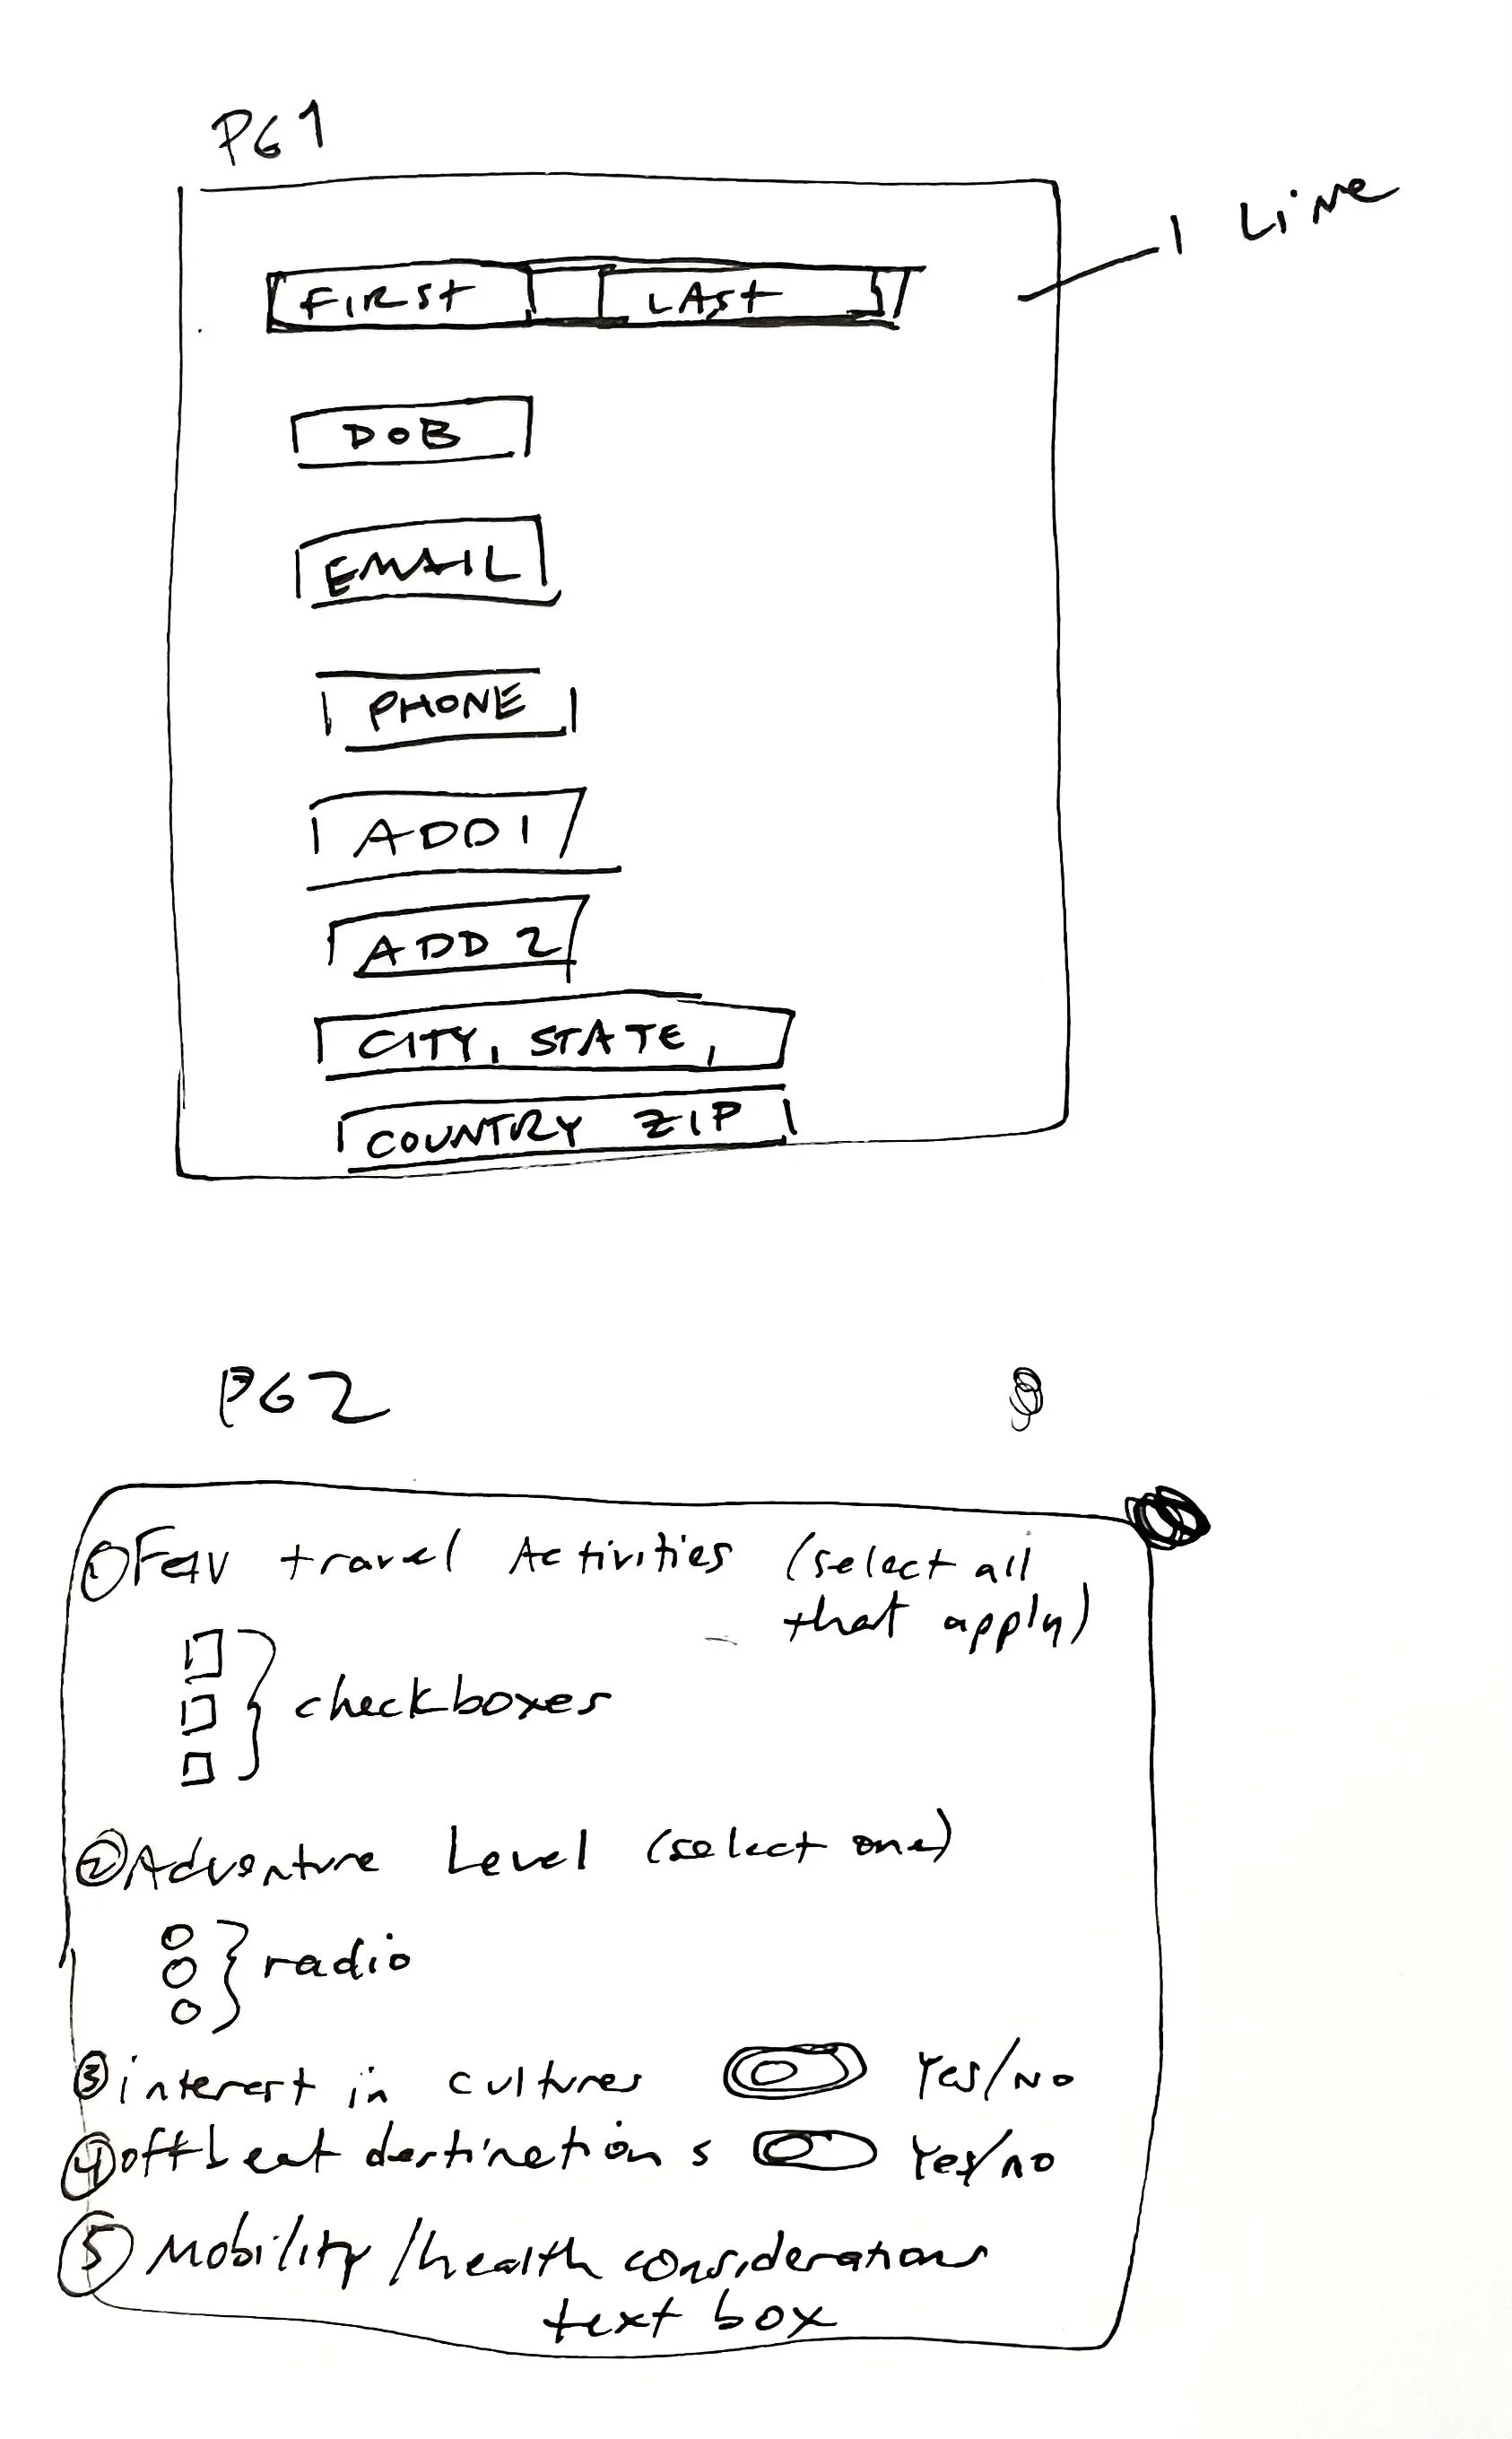 PG 1
1 Line
FIRST LAST
DOB
EMAIL
PHONE
ADD 1
ADD 2
CITY, STATE,
COUNTRY ZIP
PG 2
① Fav travel Activities (select all
that apply)
checkboxes
② Adventure Level (select one)
radio
③ interest in cultures Yes/No
④ offbeat destinations Yes/no
⑤ Mobility/health considerations
text box